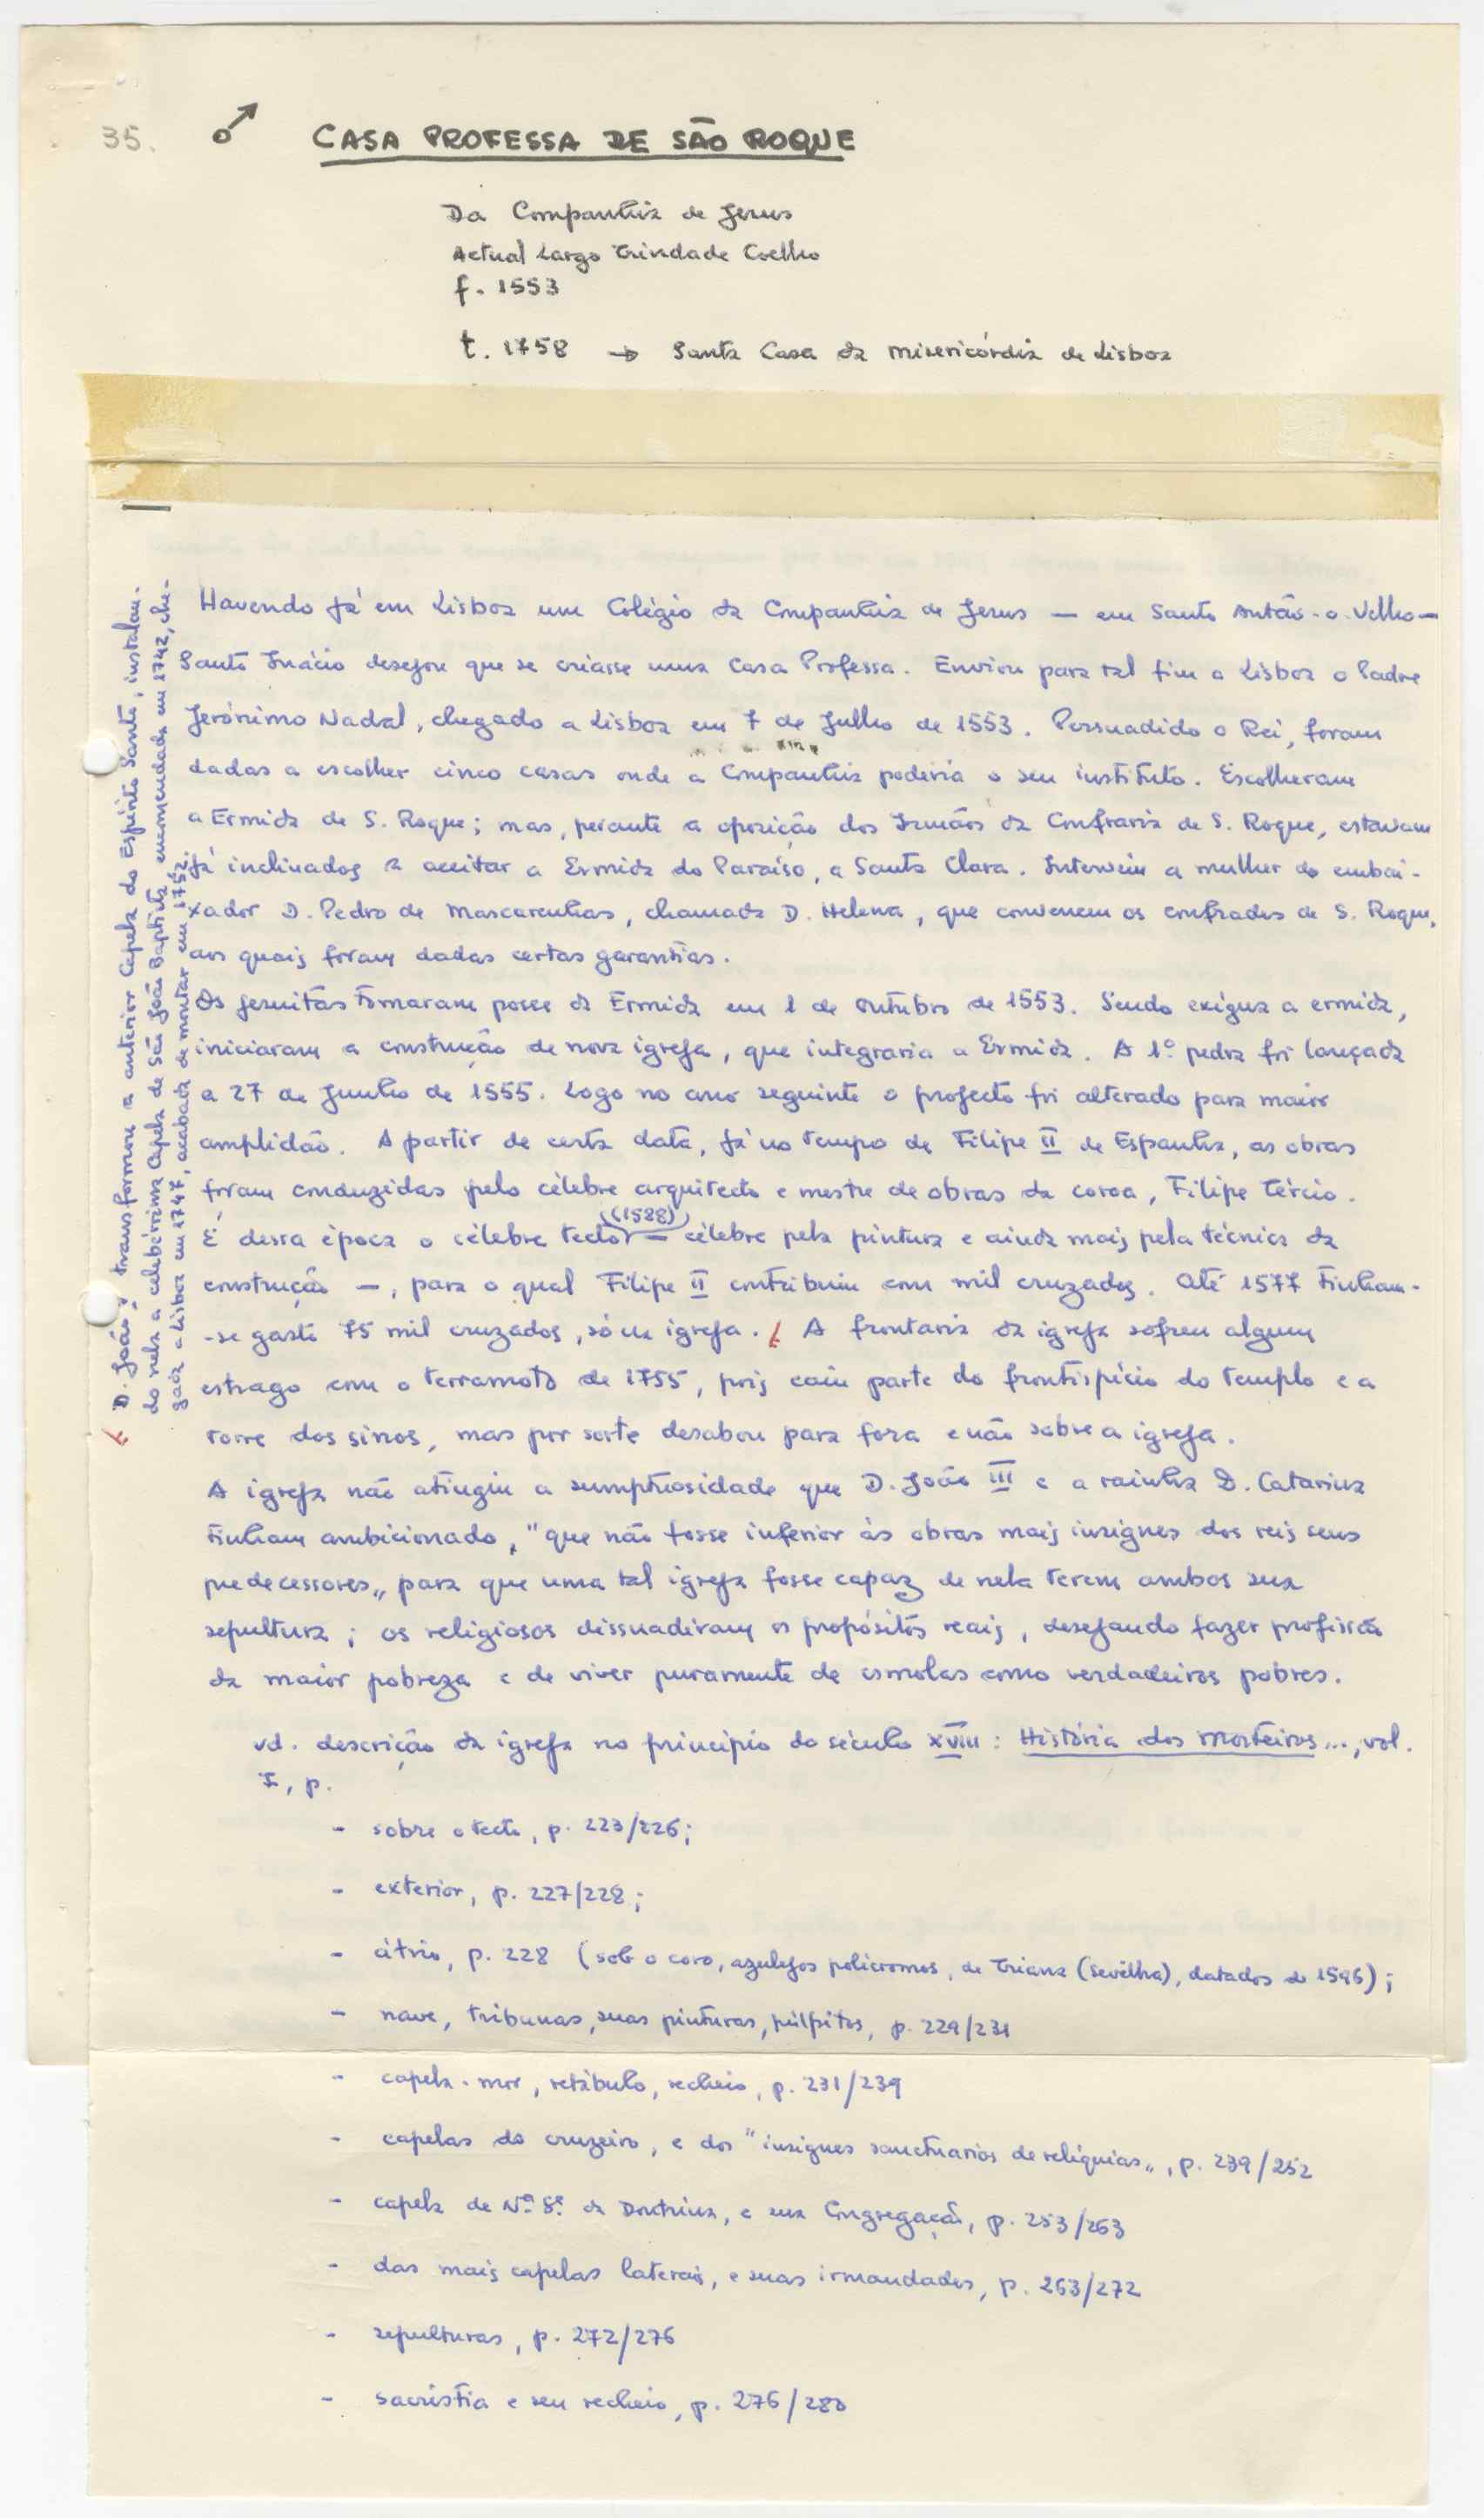 35. ♂ CASA PROFESSA DE SÃO ROQUE
Da Companhia de Jesus
Actual Largo Trindade Coelho
f. 1553
t. 1758 → Santa Casa da Misericórdia de Lisboa
Havendo já em Lisboa um Colégio da Companhia de Jesus — em Santo Antão-o-Velho —
Santo Inácio desejou que se criasse uma Casa Professa. Enviou para tal fim a Lisboa o Padre
Jerónimo Nadal, chegado a Lisboa em 7 de Julho de 1553. Persuadido o Rei, foram
dadas a escolher cinco casas onde a Companhia poderia o seu instituto. Escolheram
a Ermida de S. Roque; mas, perante a oposição dos Irmãos da Confraria de S. Roque, estavam
já inclinados a aceitar a Ermida do Paraíso, a Santa Clara. Interveio a mulher do embai-
xador D. Pedro de Mascarenhas, chamada D. Helena, que convenceu os confrades de S. Roque,
aos quais foram dadas certas garantias.
Os jesuítas tomaram posse da Ermida em 1 de Outubro de 1553. Sendo exígua a ermida,
iniciaram a construção de nova igreja, que integraria a Ermida. A 1ª pedra foi lançada
a 27 de Junho de 1555. Logo no ano seguinte o projecto foi alterado para maior
amplidão. A partir de certa data, já no tempo de Filipe II de Espanha, as obras
foram conduzidas pelo célebre arquitecto e mestre de obras da coroa, Filipe Tércio.
É dessa época o célebre tecto (1588) — célebre pela pintura e ainda mais pela técnica da
construção —, para o qual Filipe II contribuiu com mil cruzados. Até 1577 tinham-
-se gasto 75 mil cruzados, só na igreja. A frontaria da igreja sofreu algum
estrago com o terramoto de 1755, pois caiu parte do frontispício do templo e a
torre dos sinos, mas por sorte desabou para fora e não sobre a igreja.
A igreja não atingiu a sumptuosidade que D. João III e a rainha D. Catarina
tinham ambicionado, "que não fosse inferior às obras mais insignes dos reis seus
predecessores„ para que uma tal igreja fosse capaz de nela terem ambos sua
sepultura; os religiosos dissuadiram os propósitos reais, desejando fazer profissão
da maior pobreza e de viver puramente de esmolas como verdadeiros pobres.
vd. descrição da igreja no princípio do século XVIII: História dos Mosteiros..., vol.
I, p.
- sobre o tecto, p. 223/226;
- exterior, p. 227/228;
- átrio, p. 228 (sob o coro, azulejos polícromos, de Triana (Sevilha), datados de 1596);
- nave, tribunas, suas pinturas, púlpitos, p. 229/231
- capela-mor, retábulo, recheio, p. 231/239
- capelas do cruzeiro, e dos "insignes sanctuarios de reliquias„, p. 239/252
- capela de Nª Sª da Doutrina, e sua Congregação, p. 253/263
- das mais capelas laterais, e suas irmandades, p. 263/272
- sepulturas, p. 272/276
- sacristia e seu recheio, p. 276/280
D. João V transformou a anterior Capela do Espírito Santo, instalan-
do nela a celebérrima Capela de São João Baptista encomendada em 1742, che-
gada a Lisboa em 1747, acabada de montar em 1752.